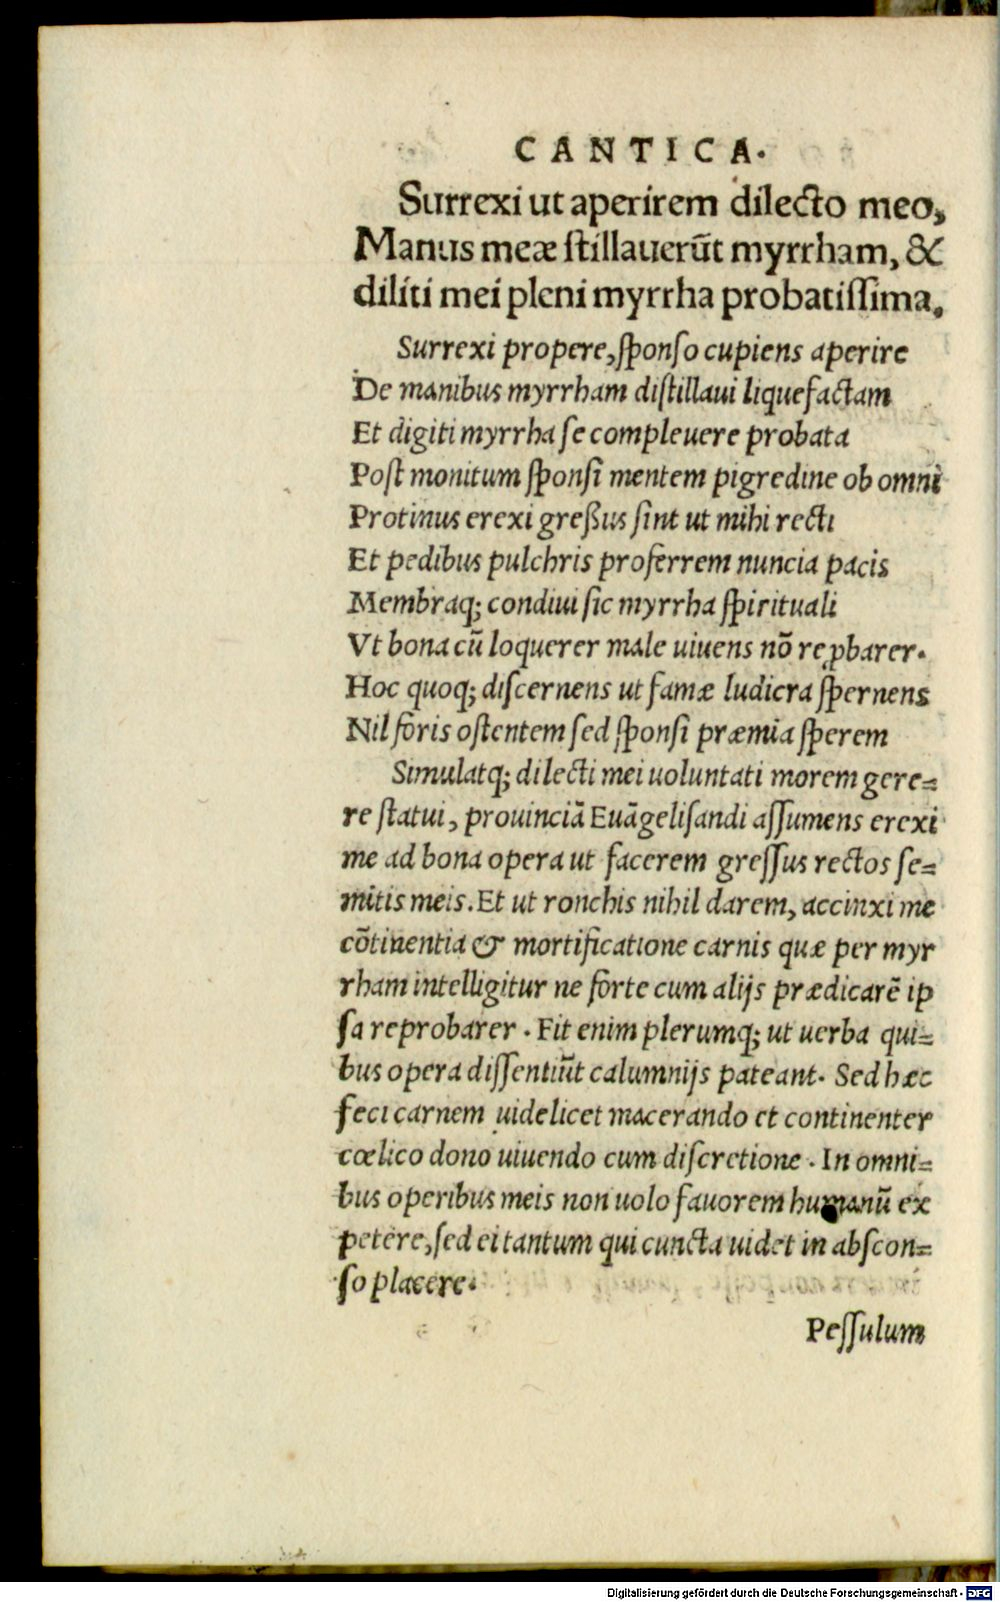 CANTICA.
Surrexi ut aperirem dilecto meo,
Manus meæ stillauerūt myrrham, &
diliti mei pleni myrrha probatissima.
Surrexi propere, sponso cupiens aperire
De manibus myrrham distillaui liquefactam
Et digiti myrrha se compleuere probata
Post monitum sponsi mentem pigredine ob omni
Protinus erexi greßus sint ut mihi recti
Et pedibus pulchris proferrem nuncia pacis
Membraq; condiui sic myrrha spirituali
Vt bona cū loquerer male uiuens nō reꝓbarer.
Hoc quoq; discernens ut famæ ludicra spernens
Nil foris ostentem sed sponsi præmia sperem
Simulatq; dilecti mei uoluntati morem gere=
re statui, prouinciā Euāgelisandi assumens erexi
me ad bona opera ut facerem gressus rectos se=
mitis meis. Et ut ronchis nihil darem, accinxi me
cōtinentia & mortificatione carnis quæ per myr
rham intelligitur ne forte cum alijs prædicarē ip
sa reprobarer. Fit enim plerumq; ut uerba qui=
bus opera dissentiūt calumnijs pateant. Sed hæc
feci carnem uidelicet macerando et continenter
cœlico dono uiuendo cum discretione. In omni=
bus operibus meis non uolo fauorem humanū ex
petere, sed ei tantum qui cuncta uidet in abscon=
so placere.
Pessulum
Digitalisierung gefördert durch die Deutsche Forschungsgemeinschaft - DFG